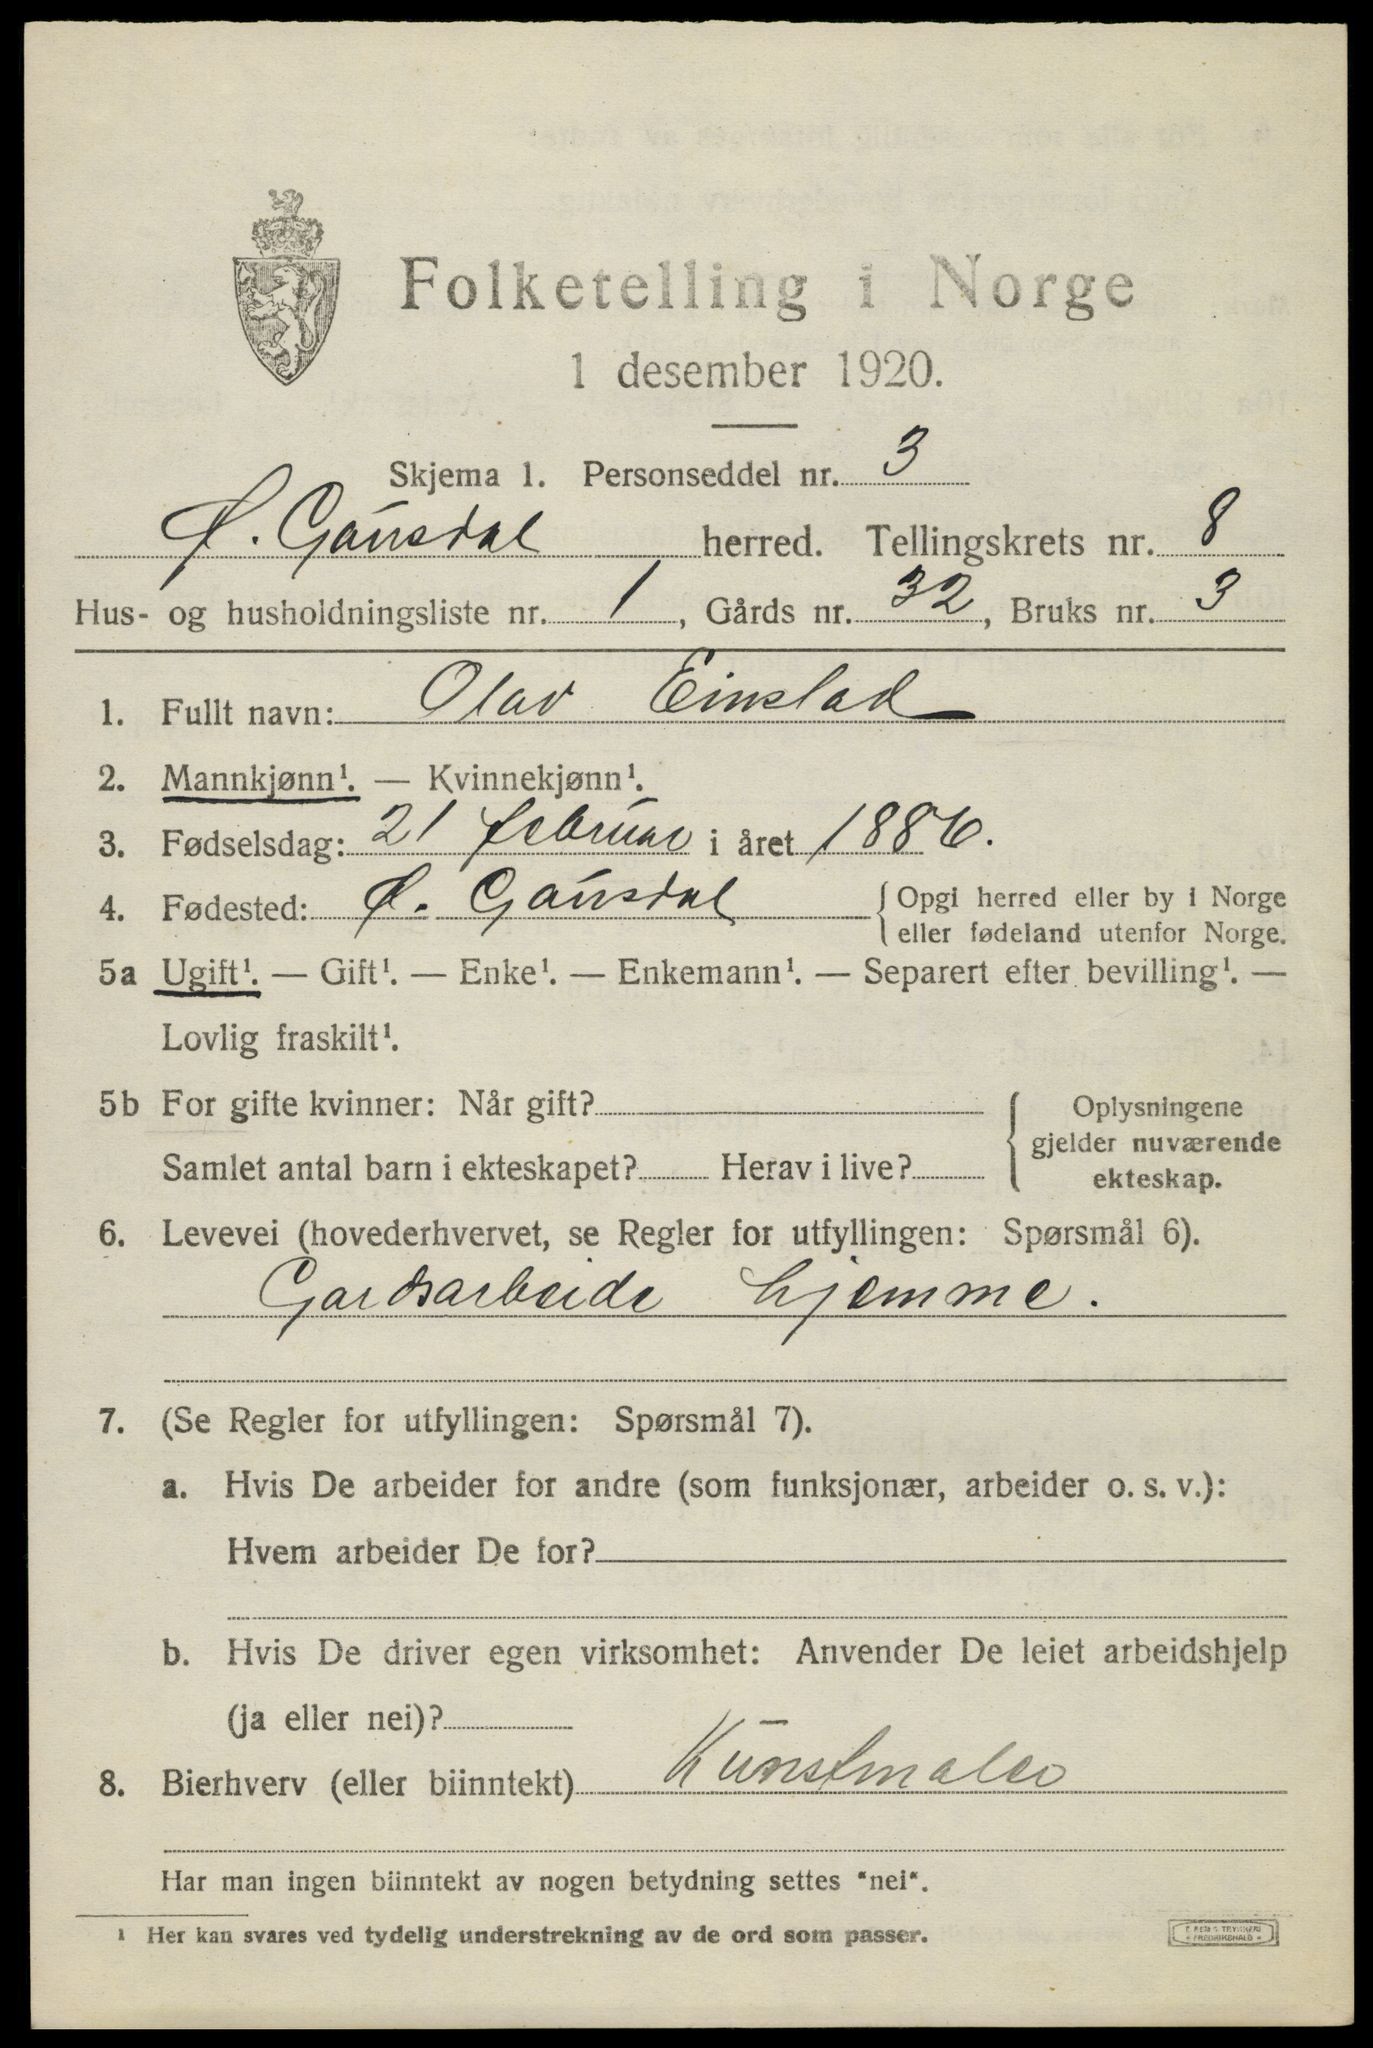 Folketelling i Norge
1 desember 1920.
Skjema 1. Personseddel nr. 3
Ø. Gausdal herred. Tellingskrets nr. 8
Hus- og husholdningsliste nr. 1, Gårds nr. 32, Bruks nr. 3
1. Fullt navn: Olav Einstad
2. Mannkjønn¹. — Kvinnekjønn¹.
3. Fødselsdag: 21 februar i året 1886.
4. Fødested: Ø. Gausdal { Opgi herred eller by i Norge
eller fødeland utenfor Norge.
5a Ugift¹. — Gift¹. — Enke¹. — Enkemann¹. — Separert efter bevilling¹. —
Lovlig fraskilt¹.
5b For gifte kvinner: Når gift? { Oplysningene
gjelder nuværende
Samlet antal barn i ekteskapet? Herav i live? ekteskap.
6. Levevei (hovederhvervet, se Regler for utfyllingen: Spørsmål 6).
Gardsarbeide hjemme.
7. (Se Regler for utfyllingen: Spørsmål 7).
a. Hvis De arbeider for andre (som funksjonær, arbeider o. s. v.):
Hvem arbeider De for?
b. Hvis De driver egen virksomhet: Anvender De leiet arbeidshjelp
(ja eller nei)?
8. Bierhverv (eller biinntekt) Kunstmaler
Har man ingen biinntekt av nogen betydning settes "nei".
¹ Her kan svares ved tydelig understrekning av de ord som passer.
TRYKKERI
FREDRIKSHALD